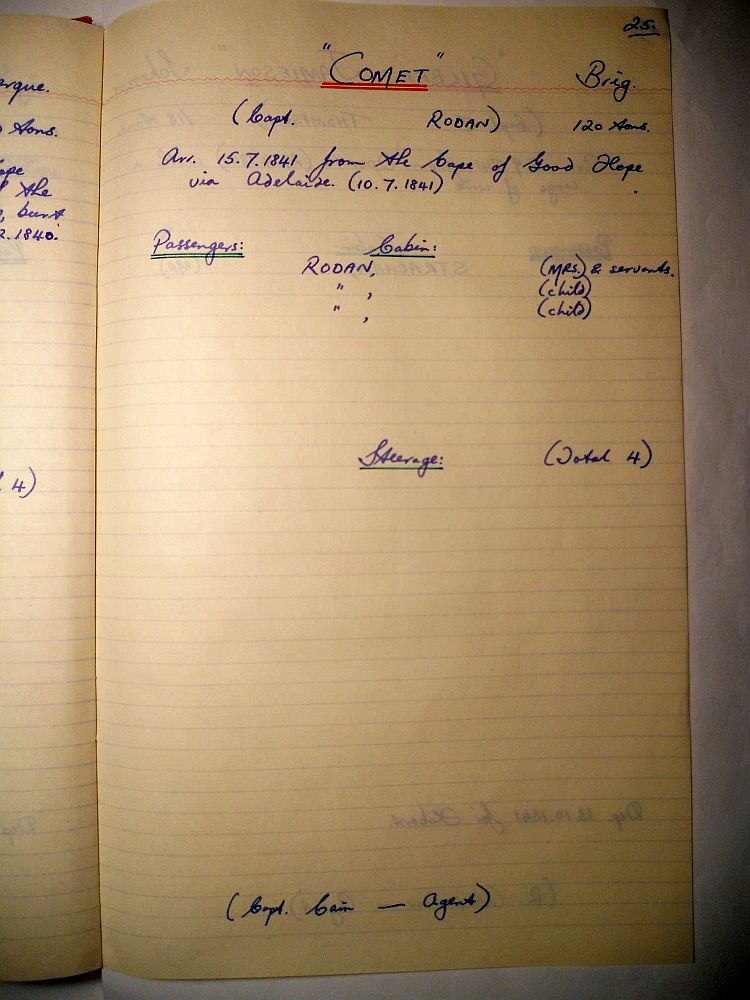 25.
"COMET" Brig.
(Capt. RODAN) 120 tons.
Arr. 15.7.1841 from the Cape of Good Hope
via Adelaide. (10.7.1841)
Passengers: Cabin:
RODAN, (MRS.) & servants.
" , (child)
" , (child)
Steerage: (Total 4)
(Capt. Cain — Agent)
tons.
the
burnt
1840.
4)